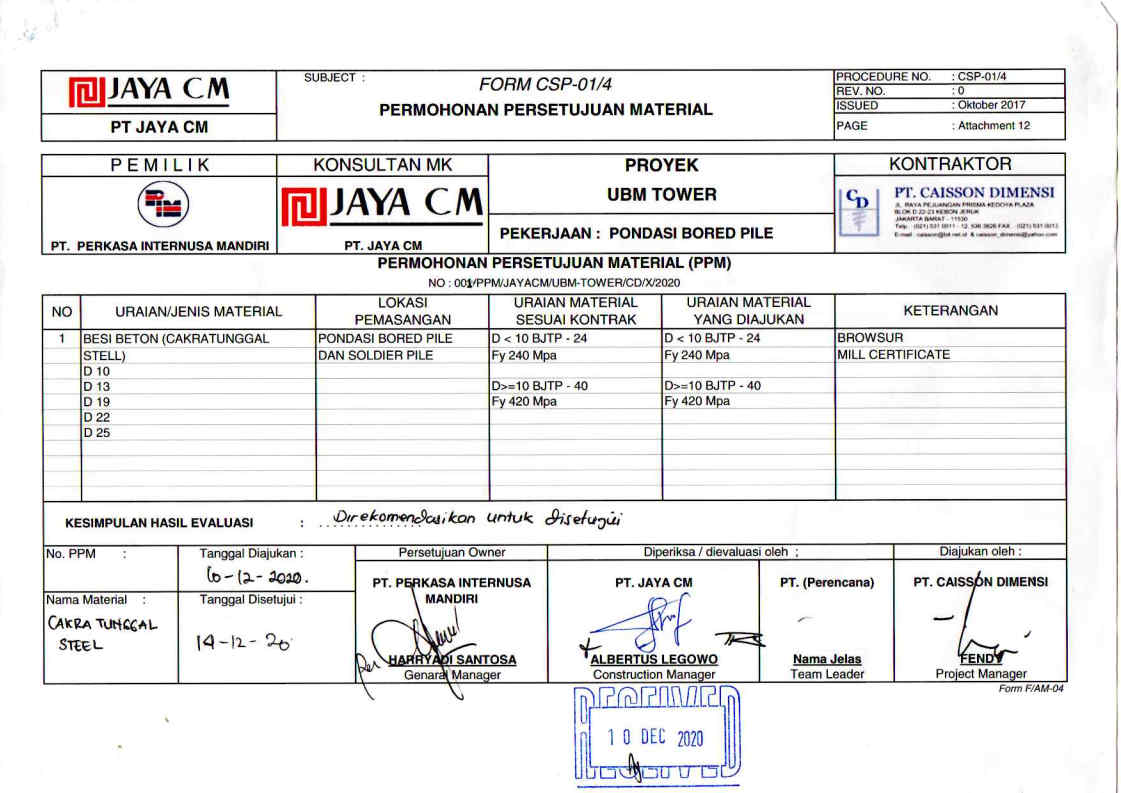 JAYA CM
PT JAYA CM
SUBJECT :
FORM CSP-01/4
PERMOHONAN PERSETUJUAN MATERIAL
PROCEDURE NO. : CSP-01/4
REV. NO. : 0
ISSUED : Oktober 2017
PAGE : Attachment 12
PEMILIK
PIM
PT. PERKASA INTERNUSA MANDIRI
KONSULTAN MK
JAYA CM
PT. JAYA CM
PROYEK
UBM TOWER
PEKERJAAN : PONDASI BORED PILE
KONTRAKTOR
CD
PT. CAISSON DIMENSI
JL. RAYA PEJUANGAN PRISMA KEDOYA PLAZA
BLOK D 22-23 KEBON JERUK
JAKARTA BARAT - 11530
PERMOHONAN PERSETUJUAN MATERIAL (PPM)
NO : 001/PPM/JAYACM/UBM-TOWER/CD/X/2020
NO URAIAN/JENIS MATERIAL LOKASI PEMASANGAN URAIAN MATERIAL SESUAI KONTRAK URAIAN MATERIAL YANG DIAJUKAN KETERANGAN
1 BESI BETON (CAKRATUNGGAL PONDASI BORED PILE D < 10 BJTP - 24 D < 10 BJTP - 24 BROWSUR
STELL) DAN SOLDIER PILE Fy 240 Mpa Fy 240 Mpa MILL CERTIFICATE
D 10
D 13 D>=10 BJTP - 40 D>=10 BJTP - 40
D 19 Fy 420 Mpa Fy 420 Mpa
D 22
D 25
KESIMPULAN HASIL EVALUASI : Direkomendasikan untuk disetujui
No. PPM :
Nama Material :
CAKRA TUNGGAL
STEEL
Tanggal Diajukan :
10-12-2020.
Tanggal Disetujui :
14-12-20
Persetujuan Owner
PT. PERKASA INTERNUSA
MANDIRI
HARRYADI SANTOSA
Genaral Manager
Diperiksa / dievaluasi oleh ;
PT. JAYA CM
ALBERTUS LEGOWO
Construction Manager
PT. (Perencana)
Nama Jelas
Team Leader
Diajukan oleh :
PT. CAISSON DIMENSI
FENDY
Project Manager
Form F/AM-04
RECEIVED
10 DEC 2020
RECEIVED